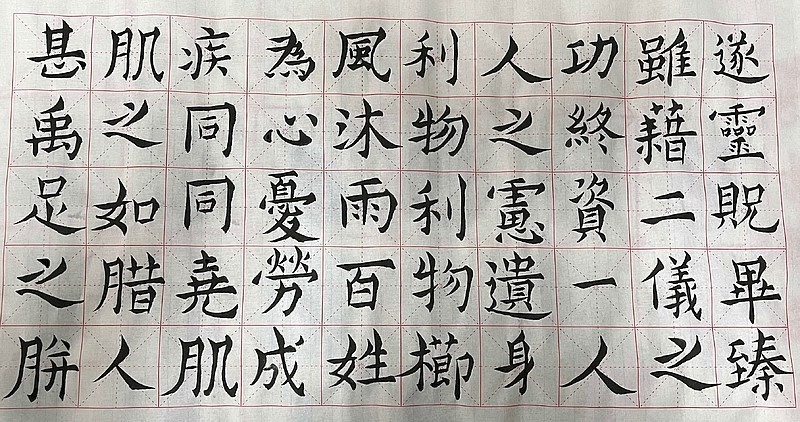 遂靈貺畢臻
雖藉二儀之
功終資一人
人之慮遺身
利物利物櫛
風沐雨百姓
為心憂勞成
疾同同堯肌
肌之如腊人
甚禹足之胼